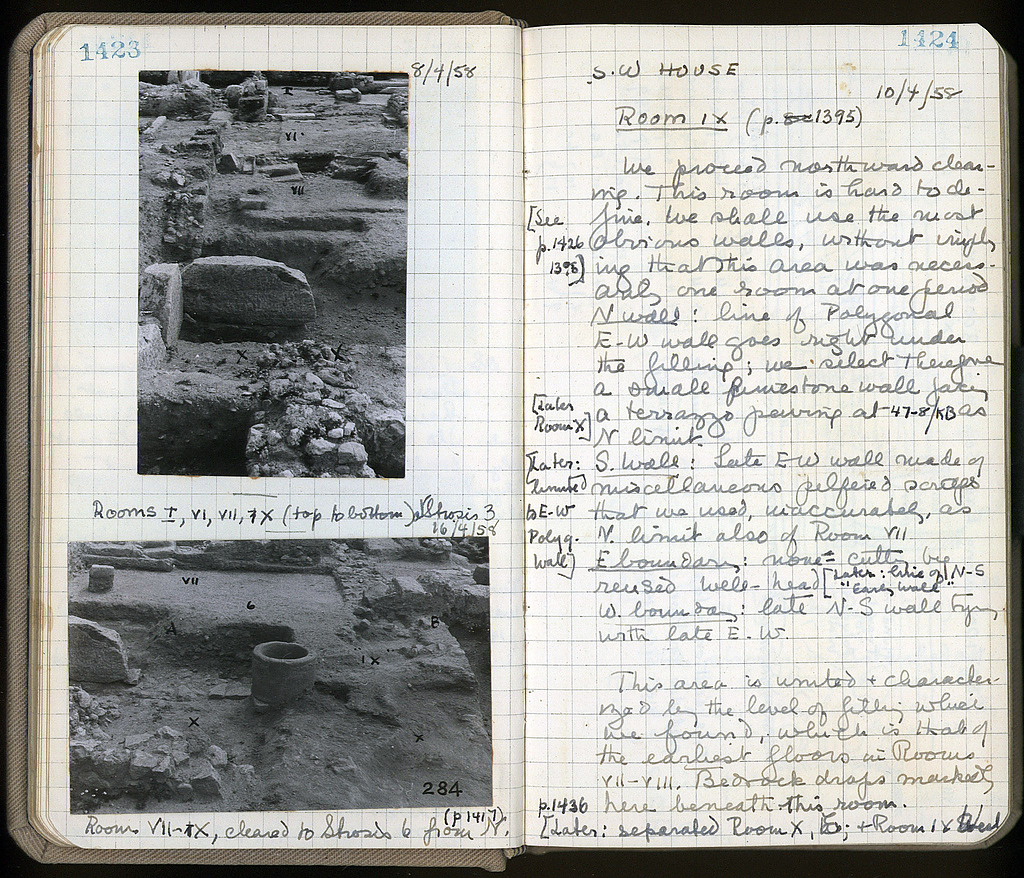 1423
8/4/58
I
VI
VII
X
X
Rooms I, VI, VII, IX (top to bottom) Strosis 3
16/4/58
VII
6
A
B
IX
X
X
284
(p 1417)
Rooms VII-IX, cleared to Strosis 6 from N.
1424
S.W HOUSE
10/4/58
Room IX (p. 1395)
We proceed northward clear-
ing. This room is hard to de-
fine. We shall use the most
obvious walls, without imply-
ing that this area was necess-
arily one room at one period
N wall: line of Polygonal
E-W wall goes right under
the filling; we select therefore
a small limestone wall facing
a terrazzo paving at 47-8/KB as
N limit.
S. Wall: Late E-W wall made of
miscellaneous pilfered scraps
that we used, inaccurately, as
N. limit also of Room VII
E boundary: none = cutting by
reused well-head [Later: line of N-S
"Early Wall"
W. boundary: late N-S wall tying
with late E.W.
[See
p.1426
1398]
[Later
Room X]
[Later:
limited
to E-W
Polyg.
Wall]
This area is united + character-
ized by the level of filling which
we found, which is that of
the earliest floors in Rooms
VII-VIII. Bedrock drops markedly
here beneath this room.
p.1436
[Later: separated Room X, + Room IX West